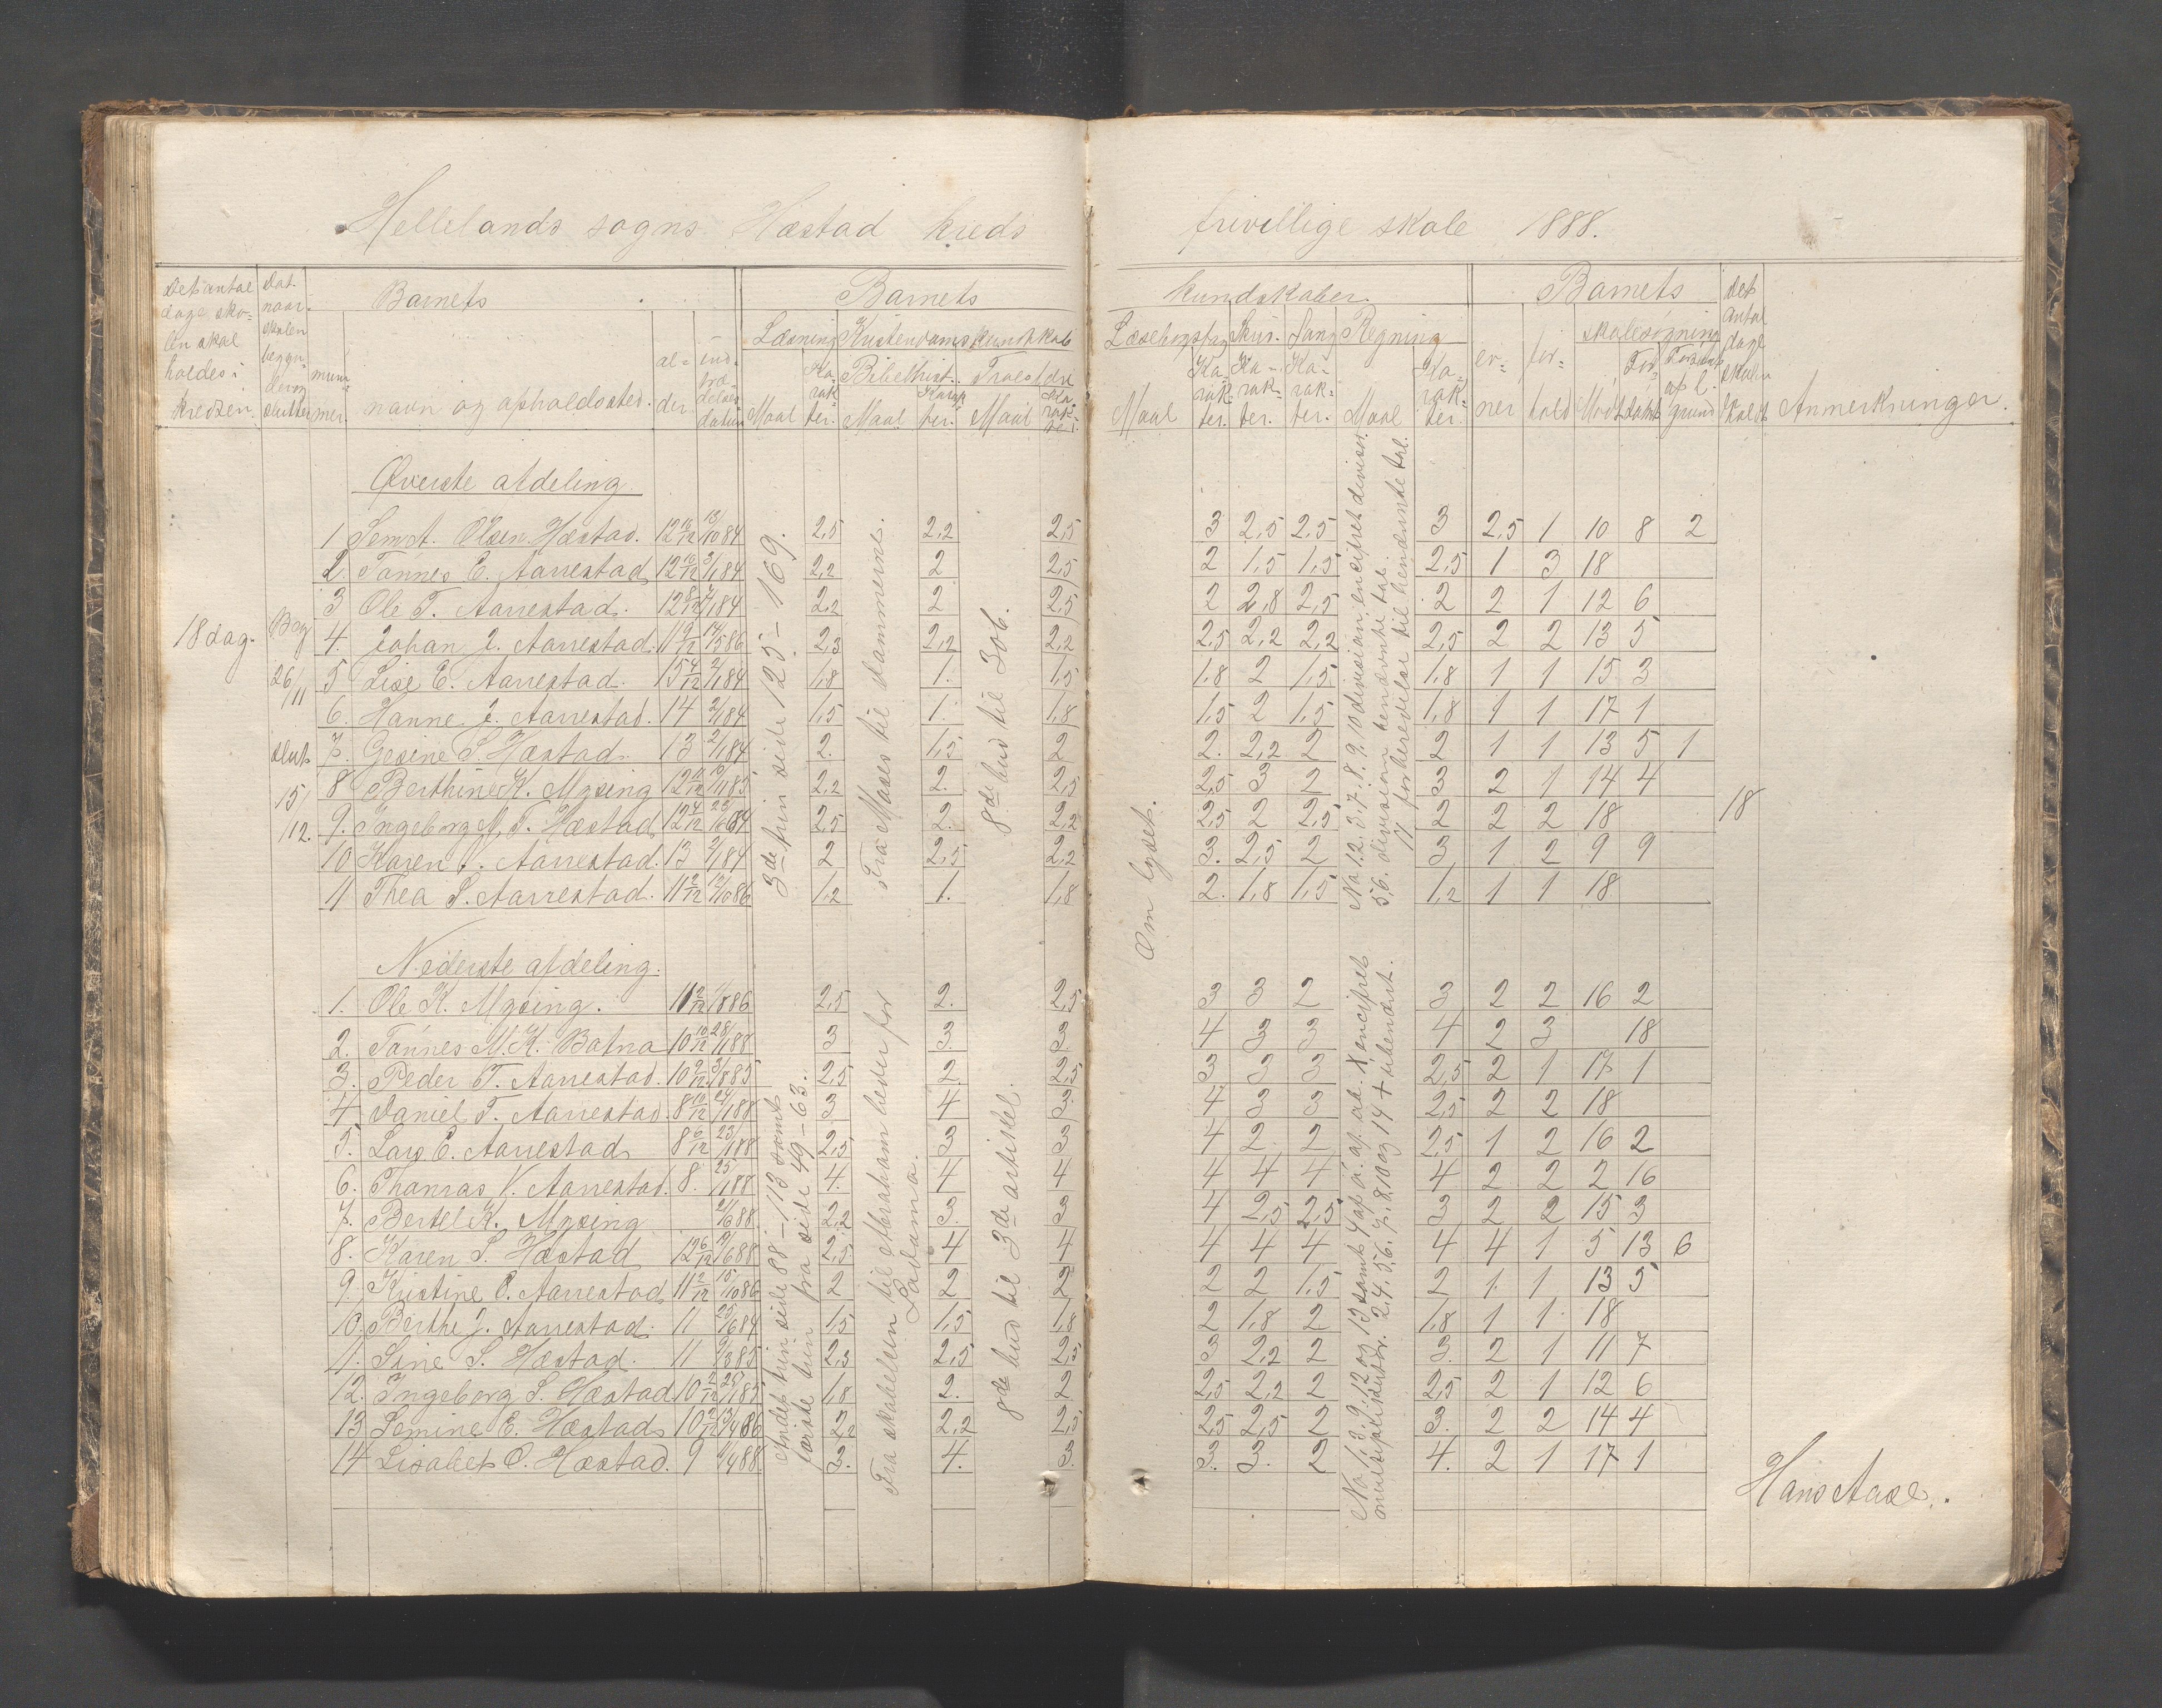 Hellelands sogns Hæstad kreds frivillige skole 1888.
Det antal dage skolen skal holdes i kredsen.
Dat. naar skolen begynder og slutter
Barnets
nummer.
navn og opholdssted.
alder
indtrædelses datum
Barnets kundskaber.
Læsning
Maal
Karakter.
Kristendomskundskab
Bibelhist.
Maal
Karakter.
Troeslære
Maal
Karakter.
Læsebogsfag
Maal
Karakter.
Skriv.
Karakter.
Sang
Karakter.
Regning
Maal
Karakter.
Barnets
evner
forhold
skolesøgning
Mødt
Forsømt
Forsømt af l. grund
det Antal dage skolen holdt
Anmerkninger.
Øverste afdeling
1 Olsen Hæstad. 12 10/12 13/10 84 2,5 2,2 2,5 3 2,5 2,5 3 2,5 1 10 8 2
2. Tønnes E. Aarrestad 12 10/12 3/1 84 2,2 2 2,5 2 1,5 1,5 2,5 1 3 18
3 Ole T. Aarrestad. 12 8/12 1/1 84 2,2 2 2,5 2 2,8 2,5 2 2 1 12 6
4. Johan J. Aarrestad. 11 9/12 14/5 86 2,3 2,2 2,2 2,5 2,2 2,2 2,5 2 2 13 5
5 Lise E. Aarrestad. 15 4/12 2/1 84 1,8 1. 1,5 1,8 2 1,5 1,8 1 1 15 3
6. Hanne J. Aarrestad. 14 2/1 84 1,5 1. 1,8 1,5 2 1,5 1,8 1 1 17 1
7. Gesine S. Hæstad. 13 2/1 84 2. 1,5 2 2. 2,2 2 2 1 1 13 5 1
8 Berthine K. Mysing 12 11/12 19/1 85 2,2 2. 2,5 2,5 3 2 3 2 1 14 4
9. Ingeborg M. T. Hæstad 12 4/12 23/6 84 2,5 2. 2,2 2,5 2 2,5 2 2 2 18
10 Karen V. Aarrestad. 13 2/1 84 2 2,5 2,2 3. 2,5 2 3 1 2 9 9
11 Thea S. Aarrestad. 11 2/12 12/10 86 1,2 1. 1,8 2. 1,8 1,5 1,2 1 1 18
18 dag.
Beg
26/11
slut
15/12.
18
3de trin side 125 - 169.
Fra Moses til dommerne.
8de bud til 3die
Øm lyset.
No 1. 2. 3. 7. 8. 9. 10 division, encifret divisor.
5.6. division benævnte tal.
11 forberedelse til benævnte tal.
Nederste afdeling.
1. Ole K. Mysing. 11 2/12 1/8 86 2,5 2. 2,5 3 3 2 3 2 2 16 2
2. Tønnes M. K. Botna 10 10/12 28/1 88 3 3. 3 4 3 3 4 2 3 18
3. Peder T. Aarrestad. 10 9/12 3/8 85 2,5 2. 2,5 3 3 3 2,5 2 1 17 1
4 Daniel T. Aarrestad. 8 10/12 24/1 88 3 4 3 4 3 3 2,5 2 2 18
5. Lars E. Aarrestad 8 6/12 23/1 88 2,5 3 3 4 2 2 2,5 1 2 16 2
6. Thomas V. Aarrestad. 8. 25/1 88 4. 4 4 4 4 4 4 2 2 2 16
7. Bertel K. Mysing 2/6 88 2,2 3. 3 4 2,5 2,5 3 2 2 15 3
8. Karen S. Hæstad 12 6/12 19/6 88 2,5 4 4 4 4 4 4 4 1 5 13 6
9. Kristine O. Aarrestad 11 2/12 15/10 86 2 2 2 2 2 1,5 2 1. 1 13 5
10. Berthe J. Aarrestad. 11 25/6 84 1,5 1,5 1,8 2 1,8 2 1,8 1 1 18
11. Sine S. Hæstad. 11 9/3 85 2,3 2,5 2,5 3 2,2 2 3. 2 1 11 7
12. Ingeborg S. Hæstad 10 2/12 25/1 85 1,8 2. 2 2,5 2,2 2 2,5 2 1 12 6
13. Semine E. Hæstad 10 2/12 13/4 86 2,2 2,2 2,5 2,5 2,5 2 3. 2 2 14 4
14 Lisabet O. Hæstad. 9 11/4 88 3. 4. 3. 3. 3. 2 4. 2 1 17 1
Andet trin side 88 - 113 samt
første trin fra side 49 - 63.
Fra skabelsen til Abraham beder for
Sodoma.
8de bud til 3de artikel.
No. 1. 3. 9. 12 og 13 samt encifret
multiplikator. 2. 4. 5. 6. 7. 8. 10 og 14 + ubenævnt.
Hans Aase.